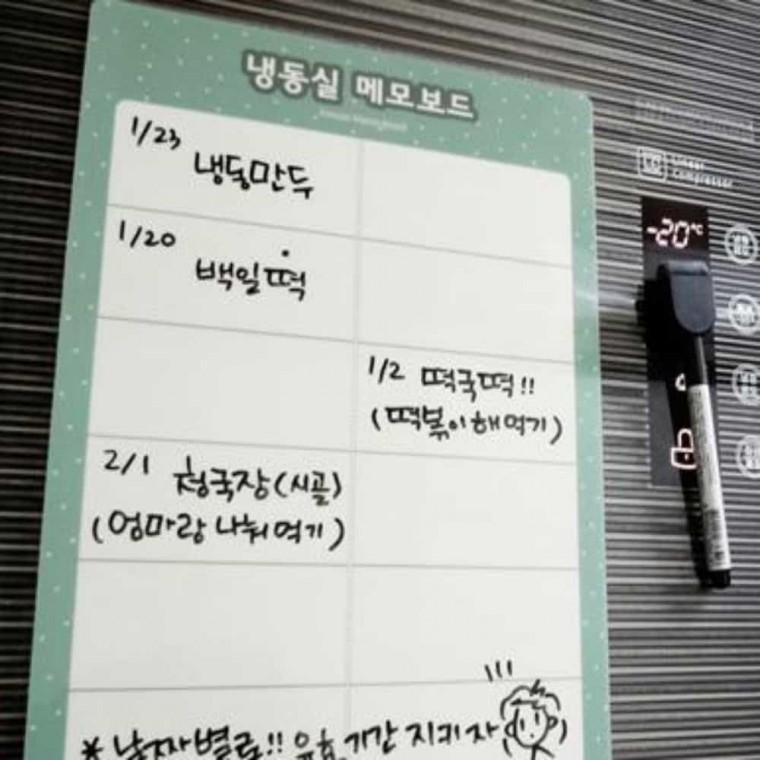 냉동실 메모보드
1/23 냉동만두
1/20 백일떡
1/2 떡국떡!!
(떡볶이해먹기)
2/1 청국장(시골)
(엄마랑 나눠먹기)
* 날짜별로!! 유효기간 지키자
Linear
Compressor
-20°C